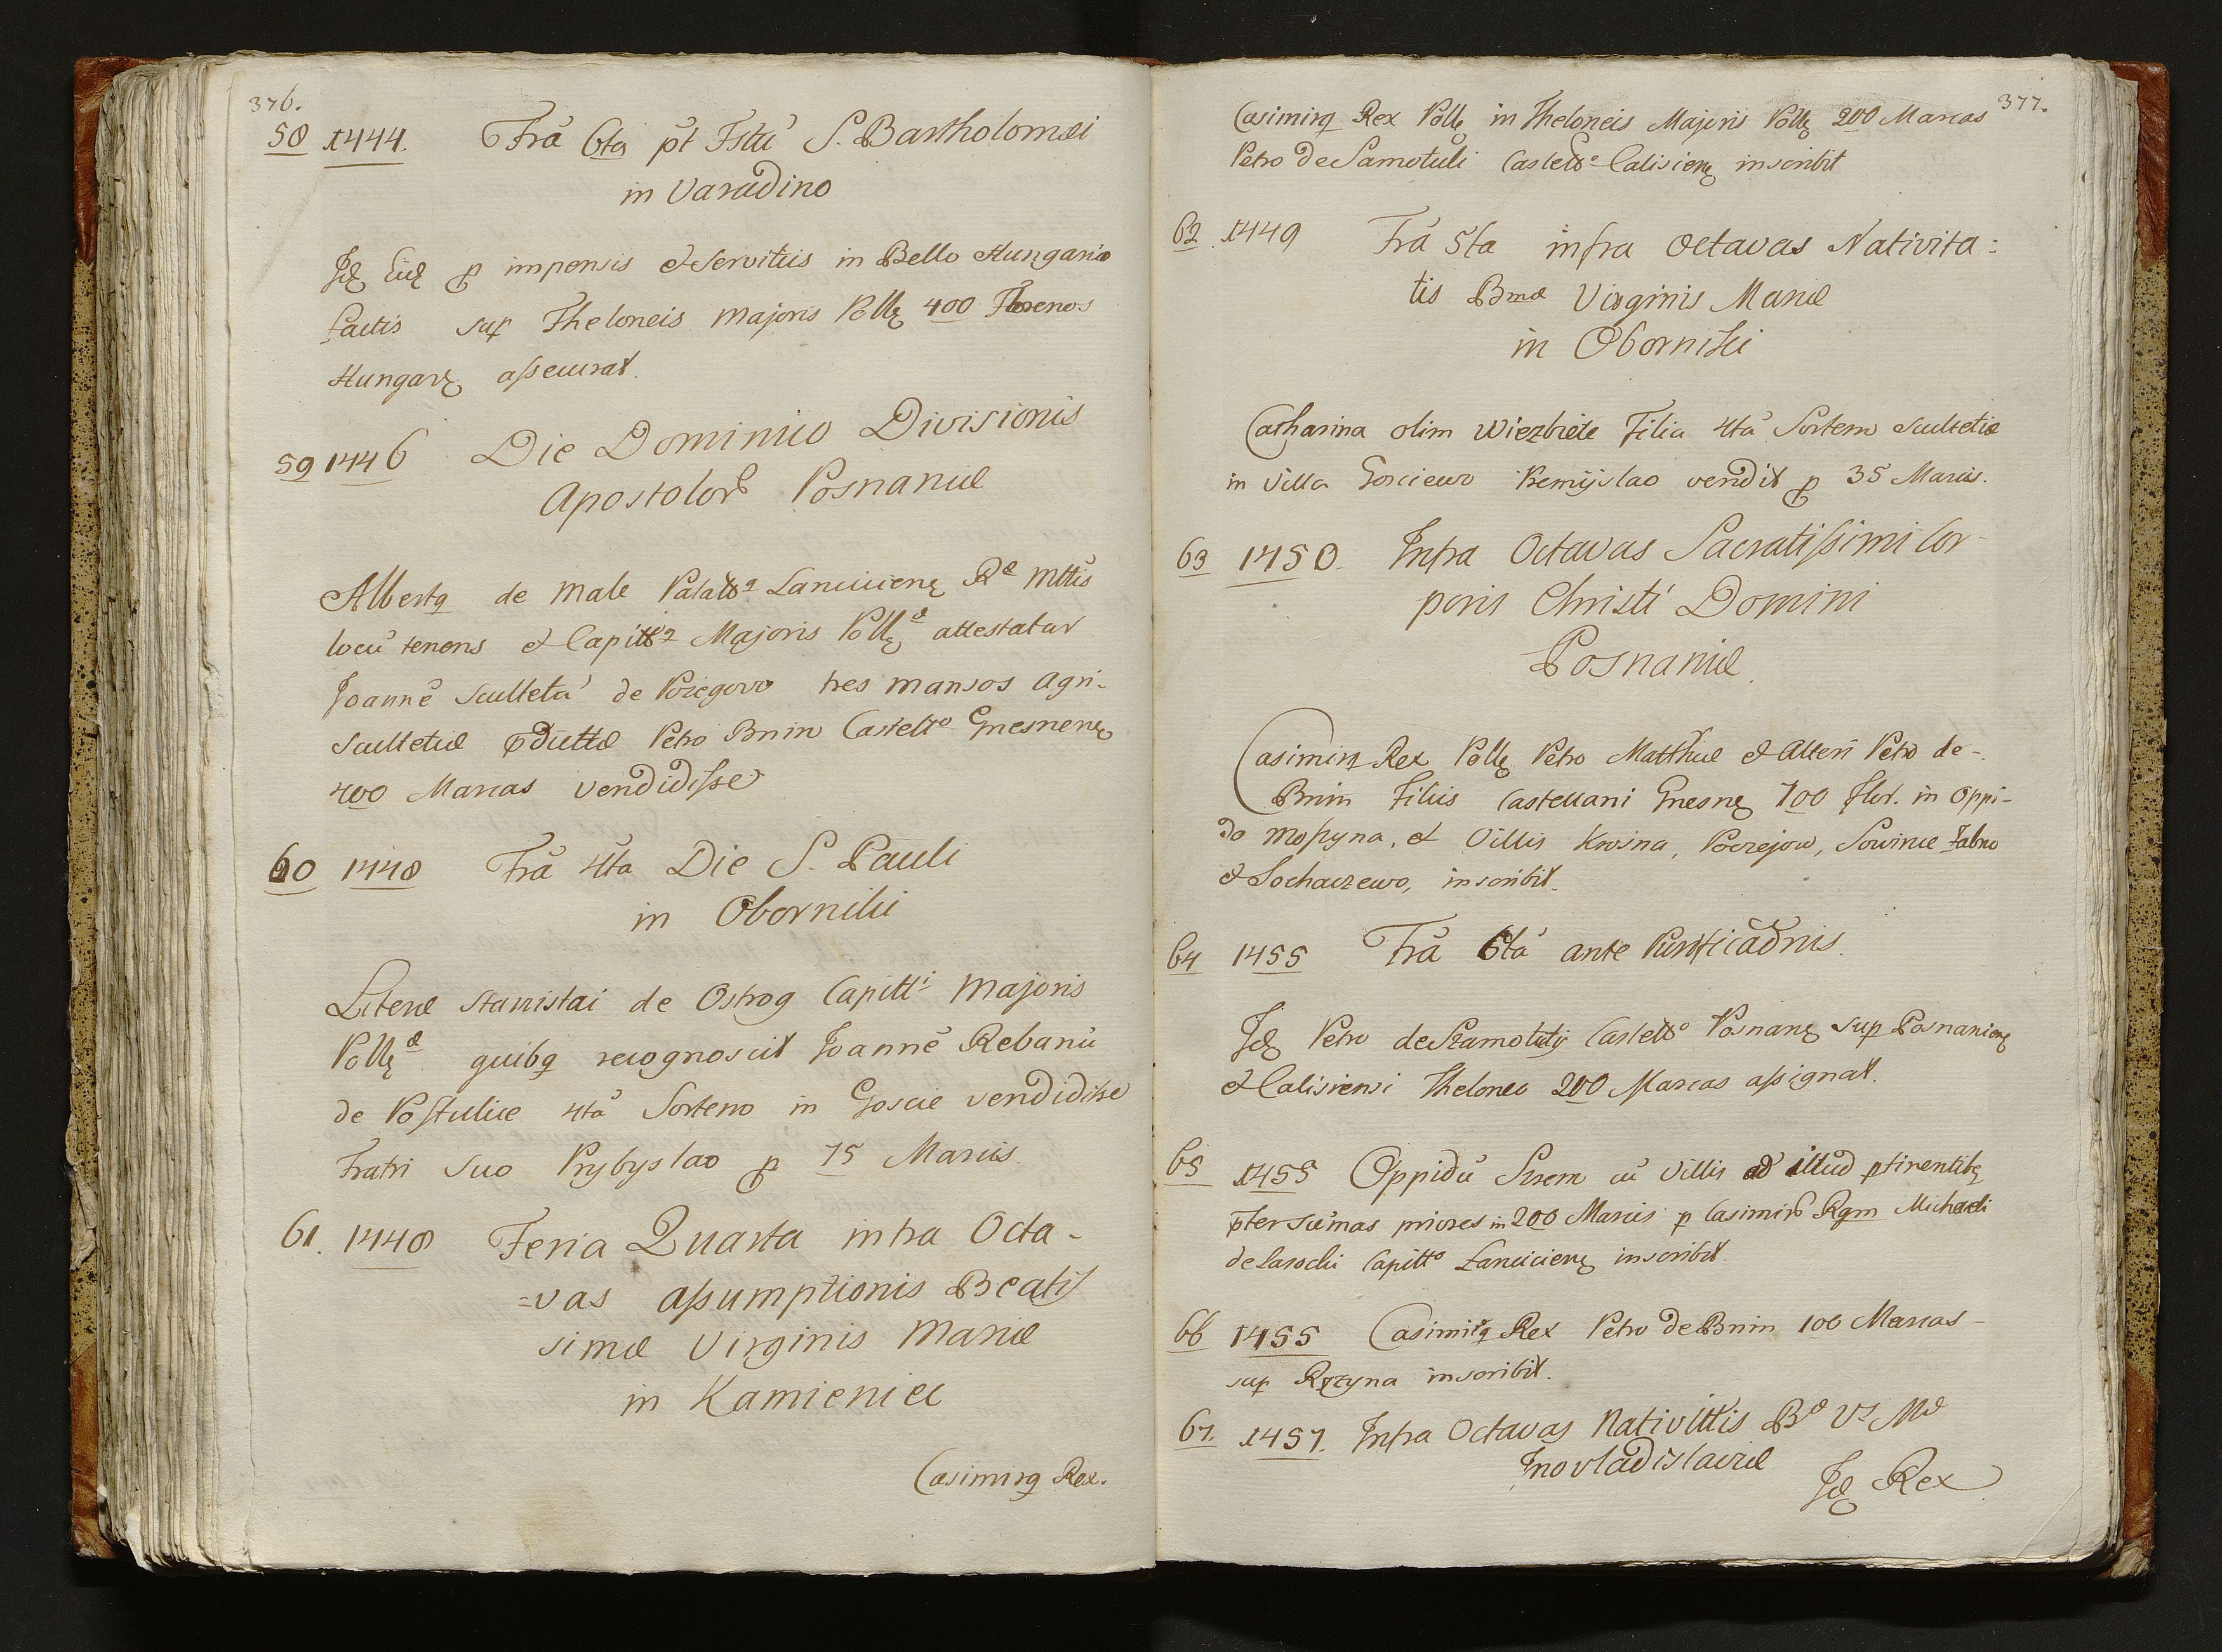 376.
58 1444. Fra 6ta pt Fstu S. Bartholomæi
in Varadino
Jdę Eidę p impensis et Servitiis in Bello Hungario
Factis sup Theloneis Majoris Pollę 400 Florenos
Hungarę assecurat.
59 1446 Die Dominico Divisionis
Apostolor Posnaniæ
Albertq de Male Palat Lanciciensę Ræ Mttis
locu tenens et Capitt Majoris Pollęæ attestatur
Joannē Scultetū de Roz̨egovo tres mansos agri
Scultetiæ pdictæ Petro Bnin Castelto Gnesnenę
400 Marcas vendidisse
60 1448 Fra 4ta Die S. Pauli
in Obornilii
Literæ Stanislai de Ostrog Capitti Majoris
Pollęæ quibq recognoscit Joannē Rebanū
de Postulice 4tā Sortem in Goscie vendidisse
Fratri Suo Prybyslao p 75 Marcis
61. 1448 Feria Quarta intra Octa-
=vas assumptionis Beatis
simæ Virginis Mariæ
in Kamieniec
Casimirq Rex.
377.
Casimirq Rex Pollę in Theloneis Majoris Pollę 200 Marcas
Petro de Samotuli Castelto Calisienę inscribit
62 1449 Fra 5ta infra Octavas Nativita:
tis Bmæ Virginis Mariæ
in Obornilii
Catharina olim Wiezbiete Filia 4tā Sortem Scultetiæ
in Villa Gosciewo Premijslao vendit p 35 Marcis.
63 1450. Infra Octavas Sacratissimi Cor-
poris Christi Domini
Posnaniæ.
Casimirq Rex Pollę Petro Matthiæ et Alteri Petro de-
Bnin Filiis Castellani Gnesnę 700 Flor. in Oppi-
do Mossyna, et Villis Krosna, Poczejow, Sowinie Łabno
et Sochaczewo, inscribit.
64 1455 Fra 6tā ante Purificaonis.
Jdę Petro de Szamotuly Castelto Posnanę sup Posnanienę
et Calisiensi Theloneo 200 Marcas assignat.
65 1455 Oppidū Srem cū Villis ad illud ptinentibę
pter sumas priores in 200 Marcis p Casimirū Rgm Michaeli
de Lasochi Capitto Łancicienę inscribit.
66 1455 Casimirq Rex Petro de Bnin 100 Marcas-
sup Rgzyna inscribit.
67. 1457. Infra Octavas Nativittis Bæ Vs Mæ
Inovladislaviæ
Jdę Rex